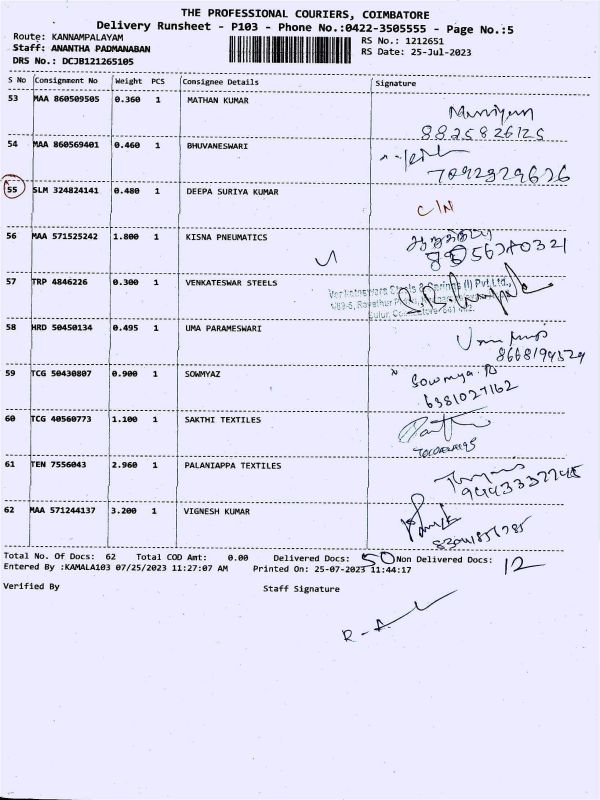 THE PROFESSIONAL COURIERS, COIMBATORE
Delivery Runsheet - P103 - Phone No.:0422-3505555 - Page No.:5
Route: KANNAMPALAYAM
RS No.: 1212651
Staff: ANANTHA PADMANABAN
RS Date: 25-Jul-2023
DRS No.: DCJB121265105
S No Consignment No Weight PCS Consignee Details Signature
53 MAA 860509505 0.360 1 MATHAN KUMAR
8825826125
54 MAA 860569401 0.460 1 BHUVANESWARI
55 SLM 324824141 0.480 1 DEEPA SURIYA KUMAR
C/N
56 MAA 571525242 1.800 1 KISNA PNEUMATICS
57 TRP 4846226 0.300 1 VENKATESWAR STEELS
58 HRD 50450134 0.495 1 UMA PARAMESWARI
8668194529
59 TCG 50430807 0.900 1 SOWMYAZ
Sowmya.
6381027162
60 TCG 40560773 1.100 1 SAKTHI TEXTILES
61 TEN 7556043 2.960 1 PALANIAPPA TEXTILES
62 MAA 571244137 3.200 1 VIGNESH KUMAR
Total No. Of Docs: 62 Total COD Amt: 0.00 Delivered Docs: 50 Non Delivered Docs: 12
Entered By :KAMALA103 07/25/2023 11:27:07 AM Printed On: 25-07-2023 11:44:17
Verified By Staff Signature